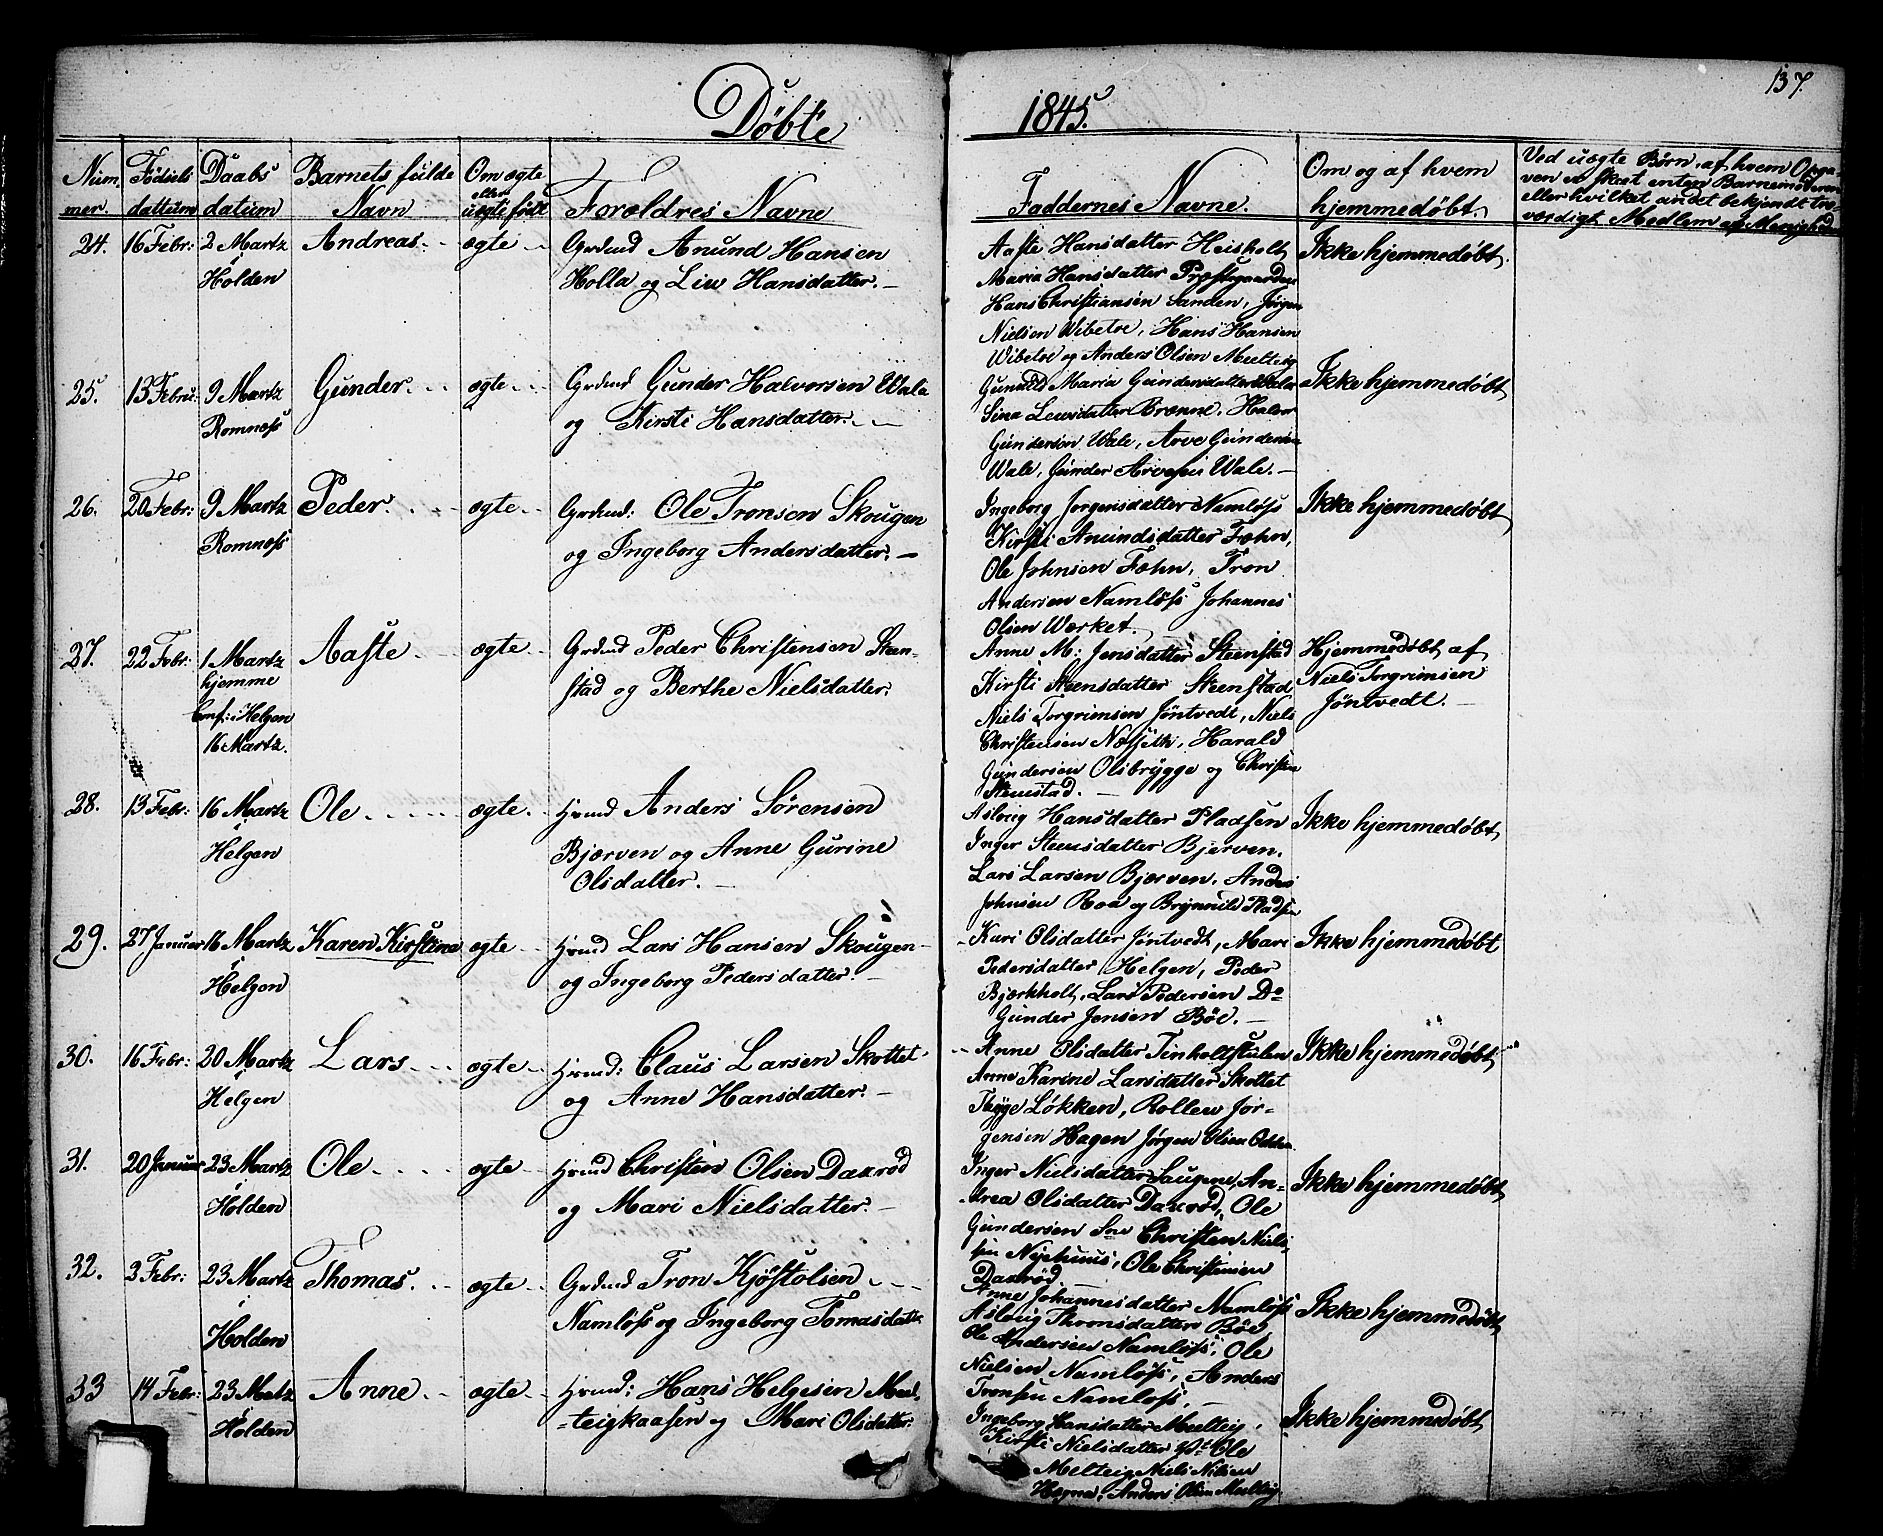 137.
Døbte 1845.
Num- mer. Fødsels dattum Daabs datum Barnets fulde Navn Om ægte eller uægte født Forældres Navne
Faddernes Navne. Om og af hvem hjemmedøbt.
Ved uægte Børn, af hvem Opga-
ven er skeet enten Barnemoderen
eller hvilket andet bekjendt tro-
værdigt Medlem af Menigheden
24. 16 Febr: 2 Martz i Holden Andreas ægte
Grdmd Anund Hansen
Holla og Liw Hansdatter.
Aaste Hansdatter Heisholt
Maria Hansdatter Præstegaarden
Hans Christiansen Sanden, Jørgen
Nielsen Wibetoe, Hans Hansen
Wibetoe og Anders Olsen Melteig
Ikke hjemmedøbt.
25. 13 Febru: 9 Martz Romnæss Gunder. ægte
Grdmd Gunder Halvorsen Wala
og Kirsti Hansdatter.
Gunuld Maria Gundersdatter
Sina Lewsdatter Brenne. Halvor
Gundersen Wale, Arve Gundersen
Wale, Gunder Arvesen Wale.
Ikke hjemmedøbt
26. 20 Febr: 9 Martz Romnæss Peder. ægte
Grdmd: Ole Tronsen Skougen
og Ingeborg Andersdatter.
Ingeborg Jorgensdatter Namløss
Kirsti Anundsdatter Fæhn,
Ole Johnsen Fæhn, Tron
Andersen Namløss Johannes
Olsen Wærket.
Ikke hjemmedøbt
27. 22 Febr: 1 Martz hjemme Conf: i Helgen 16 Martz. Aaste ægte
Grdmd Peder Christensen Steen-
stad og Berthe Nielsdatter.
Anne M: Jensdatter Steenstad
Kirsti Steensdatter Steenstad
Niels Torgrimsen Jøntvedt, Niels
Christensen Næsseth, Harald
Gundersen Olsbrygge og Christen
Steenstad.
Hjemmedøbt af
Niels Torgrimsen
Jøntvedt.
28. 13 Febr: 16 Martz i Helgen Ole ægte.
Hvmd Anders Sørensen
Bjærven og Anne Gurine
Olsdatter.
Asloug Hansdatter Pladsen
Inger Steensdatter Bjerven.
Lars Larsen Bjærven. Anders
Johnsen Roa og Brynnild Pladsen
Ikke hjemmedøbt
29. 27 Januar 16 Martz i Helgen Karen Kirstine ægte
Hvmd Lars Hansen Skougen
og Ingeborg Pedersdatter.
Kari Olsdatter Jøntvedt, Mari
Pedersdatter Helgen, Peder
Bjærkholt, Lars Pedersen Do
Gunder Jensen Bøe.
Ikke hjemmedøbt
30. 16 Febr: 20 Martz i Helgen Lars ægte
Hvmd: Claus Larsen Skottet
og Anne Hansdatter.
Anne Olsdatter Tinholtstulen
Anne Karine Larsdatter Skottet
Thyge Løkken, Rollew Jør-
gensen Hagen Jørgen Olsen
Ikke hjemmedøbt
31. 20 Januar 23 Martz i Holden Ole ægte
Hvmd Christen Olsen Daurød
og Mari Nielsdatter.
Inger Nielsdatter Haugene, An-
drea Olsdatter Daurød, Ole
Gundersen Christen Niel-
sen Nyehuus, Ole Christensen
Daurød
Ikke hjemmedøbt
32. 2 Febr: 23 Martz i Holden Thomas. ægte
Grdmd Tron Kjøstolsen
Namløss og Ingeborg Tomasdatt:
Anne Johannesdatter Namløss
Asloug Thronsdatter Bøe
Ole Andersen Namløss, Ole
Nielsen Namløss, Anders
Tronsen Namløss.
Ikke hjemmedøbt
33 14 Febr: 23 Metz i Holden Anne ægte
Hvmd: Hans Helgesen Mel-
teigkaasen og Mari Olsdatter:
Ingeborg Hansdatter Meelteig,
Kirsti Nielsdatter Ole
Melteig Niels Nilsen
Hagna, Anders Olsen Meelteig
Ikke hjemmedøbt